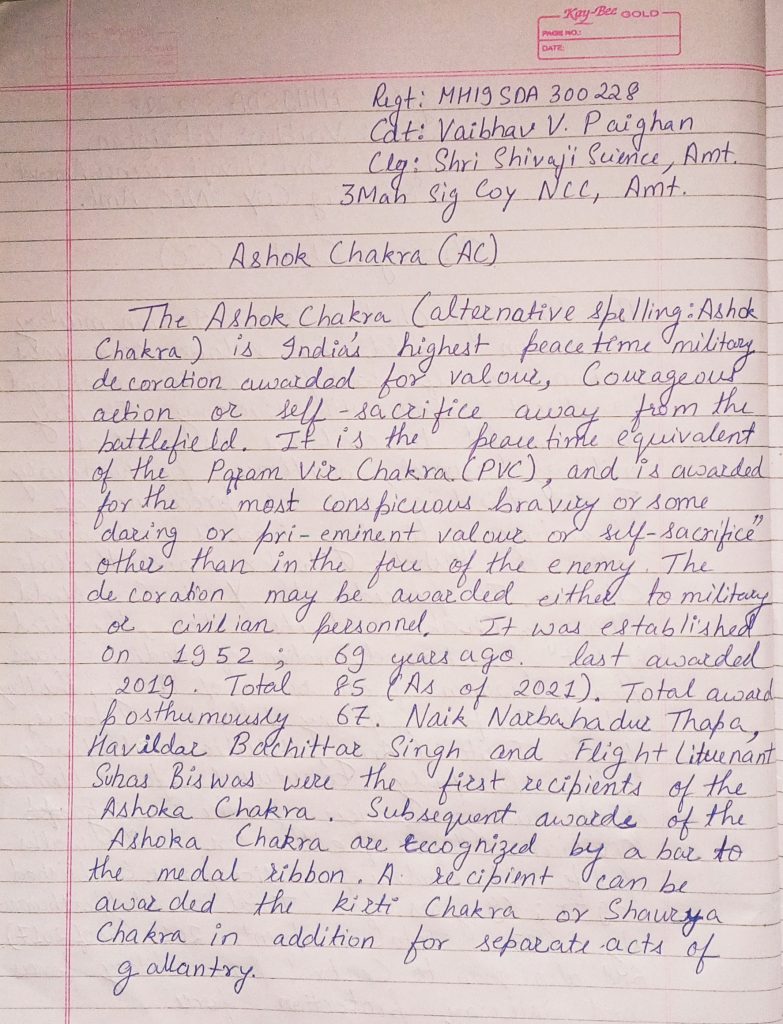 Kay-Bee GOLD
PAGE NO.:
DATE:
Regt: MH19 SDA 300 228
Cdt: Vaibhav V. Paighan
Clg: Shri Shivaji Science, Amt.
3 Mah Sig Coy NCC, Amt.
Ashok Chakra (AC)
The Ashok Chakra (alternative spelling: Ashok
Chakra) is India's highest peace time military
decoration awarded for valour, Courageous
action or self-sacrifice away from the
battlefield. It is the peace time equivalent
of the Param Vir Chakra (PVC), and is awarded
for the "most conspicuous bravery or some
daring or pri-eminent valour or self-sacrifice"
other than in the face of the enemy. The
decoration may be awarded either to military
or civilian personnel. It was established
on 1952; 69 years ago. last awarded
2019. Total 85 (As of 2021). Total award
posthumously 67. Naik Narbahadur Thapa,
Havildar Bachittar Singh and Flight Lituenant
Suhas Biswas were the first recipients of the
Ashoka Chakra. Subsequent awards of the
Ashoka Chakra are recognized by a bar to
the medal ribbon. A recipient can be
awarded the kirti Chakra or Shaurya
Chakra in addition for separate acts of
gallantry.